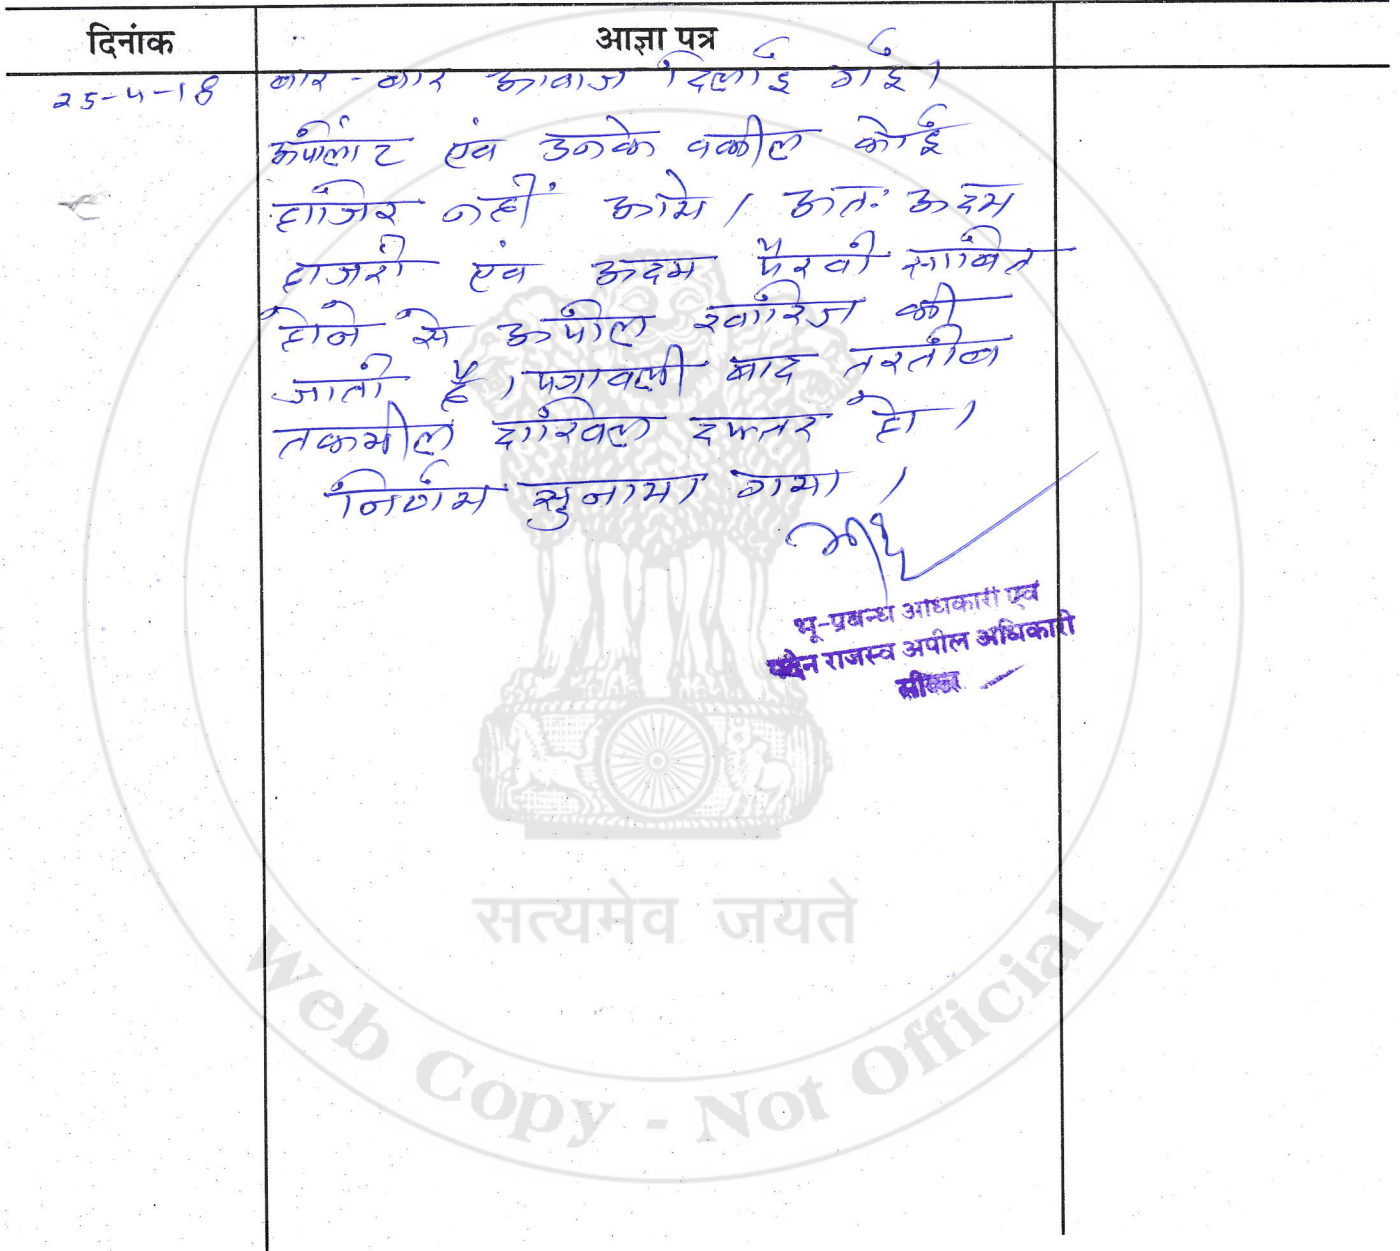 दिनांक
आज्ञा पत्र
25-4-18
बार - बार आवाज दिलाई गई।
अपीलांट एवं उनके वकील कोई
हाजिर नहीं आये। अतः अदम
हाजरी एवं अदम पैरवी साबित
होने से अपील खारिज की
जाती है। पत्रावली बाद तरतीब
तकमील दाखिल दफ्तर हो।
निर्णय सुनाया गया।
भू-प्रबन्ध अधिकारी एवं
पदेन राजस्व अपील अधिकारी
सीकर
सत्यमेव जयते
Web Copy - Not Official